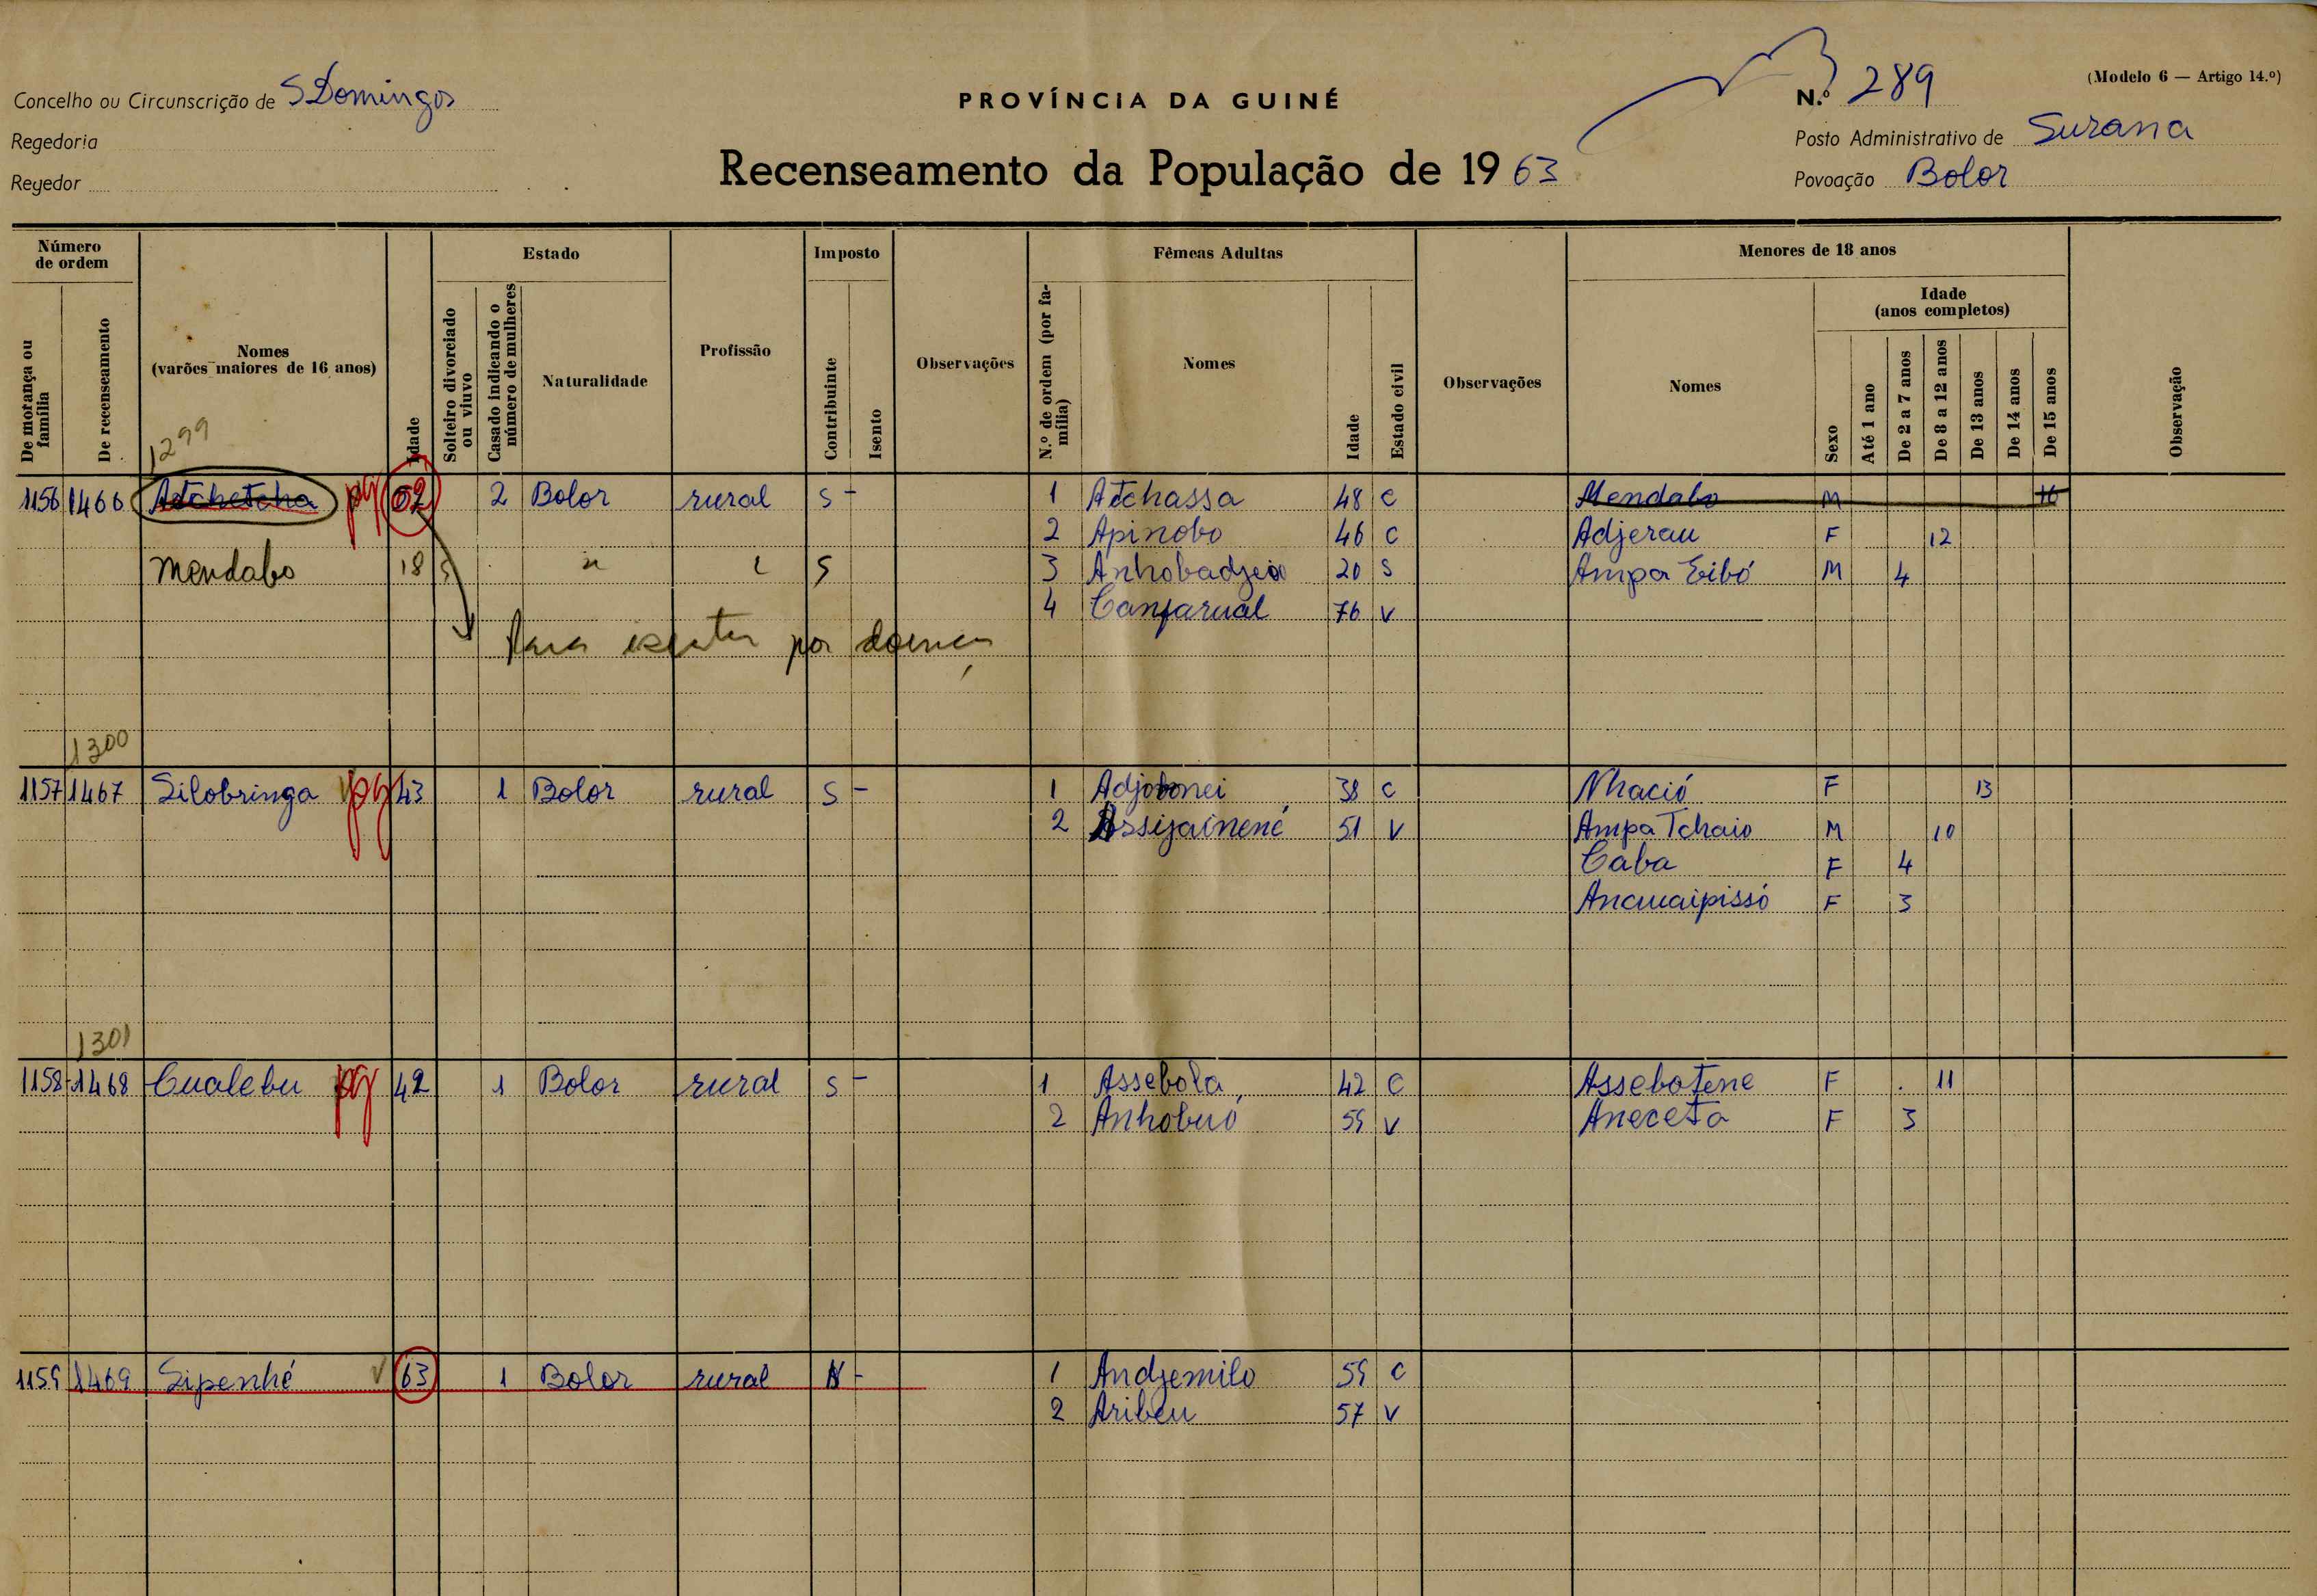 (Modelo 6 — Artigo 14.º)
Concelho ou Circunscrição de S Domingos
PROVÍNCIA DA GUINÉ
N.º 289
Regedoria
Posto Administrativo de Surana
Regedor
Recenseamento da População de 1963
Povoação Bolor
Número de ordem
De morança ou família
De recenseamento
Nomes (varões maiores de 16 anos)
Idade
Estado
Solteiro divorciado ou viuvo
Casado indicando o número de mulheres
Naturalidade
Profissão
Imposto
Contribuinte
Isento
Observações
Fêmeas Adultas
N.º de ordem (por família)
Nomes
Idade
Estado civil
Observações
Menores de 18 anos
Nomes
Sexo
Idade (anos completos)
Até 1 ano
De 2 a 7 anos
De 8 a 12 anos
De 13 anos
De 14 anos
De 15 anos
Observação
1299
1156 1466 Atchetcha pg 2 Bolor rural S - 1 Atchassa 48 C Mendabo M 16
2 Apinobo 46 C Adjerau F 12
Mendabo 18 S S 3 20 S Ampa Eibó M 4
4 Canjarual 76 V
Para isentar por doença
1300
1157 1467 Silobringa pg 43 1 Bolor rural S - 1 Adjobonei 38 C Nhació F 13
2 Assijainené 51 V Ampa Tchaio M 10
Caba F 4
Ancuaipissó F 3
1301
1158 1468 Cualebu pg 42 1 Bolor rural S - 1 Assebola 42 C Assebotene F 11
2 Anhobuó 55 V Aneceta F 3
1159 1469 Sipenhé V 63 1 Bolor rural N - 1 Andjemilo 55 C
2 Aribeu 57 V